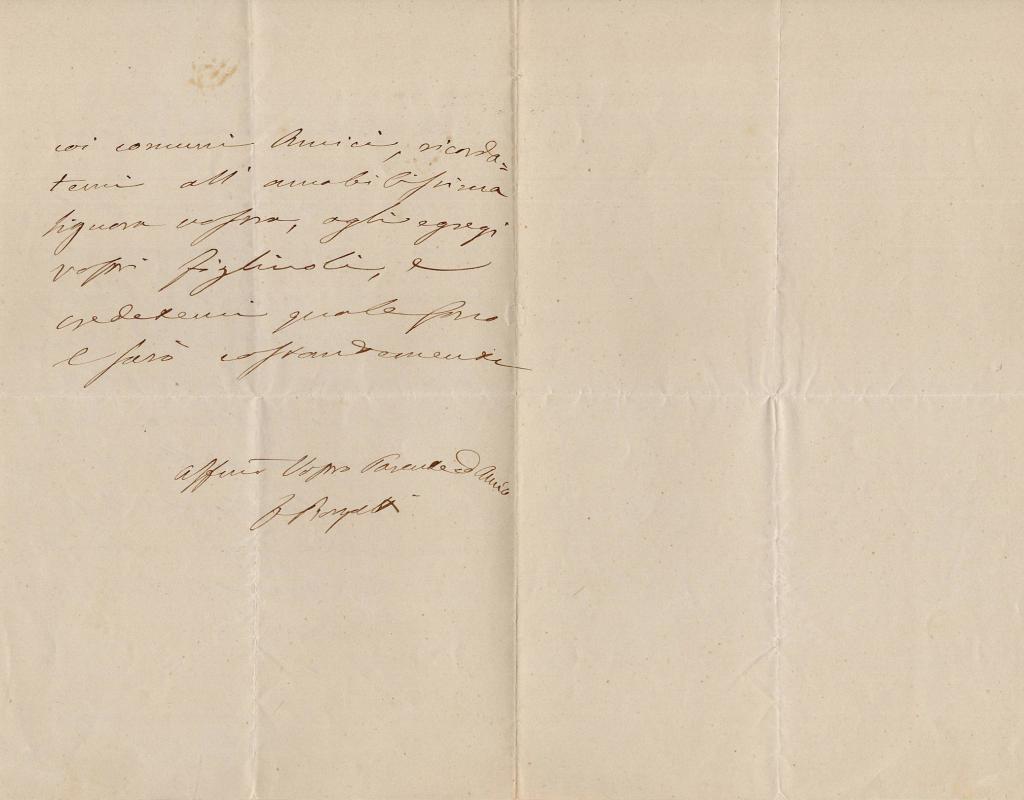 coi comuni Amici, ricorda=
temi all'amabilissima
signora vostra, agli egregi
vostri figliuoli, e
credetemi quale sono
e sarò costantemente
Affmo Vostro Parente ed Amico